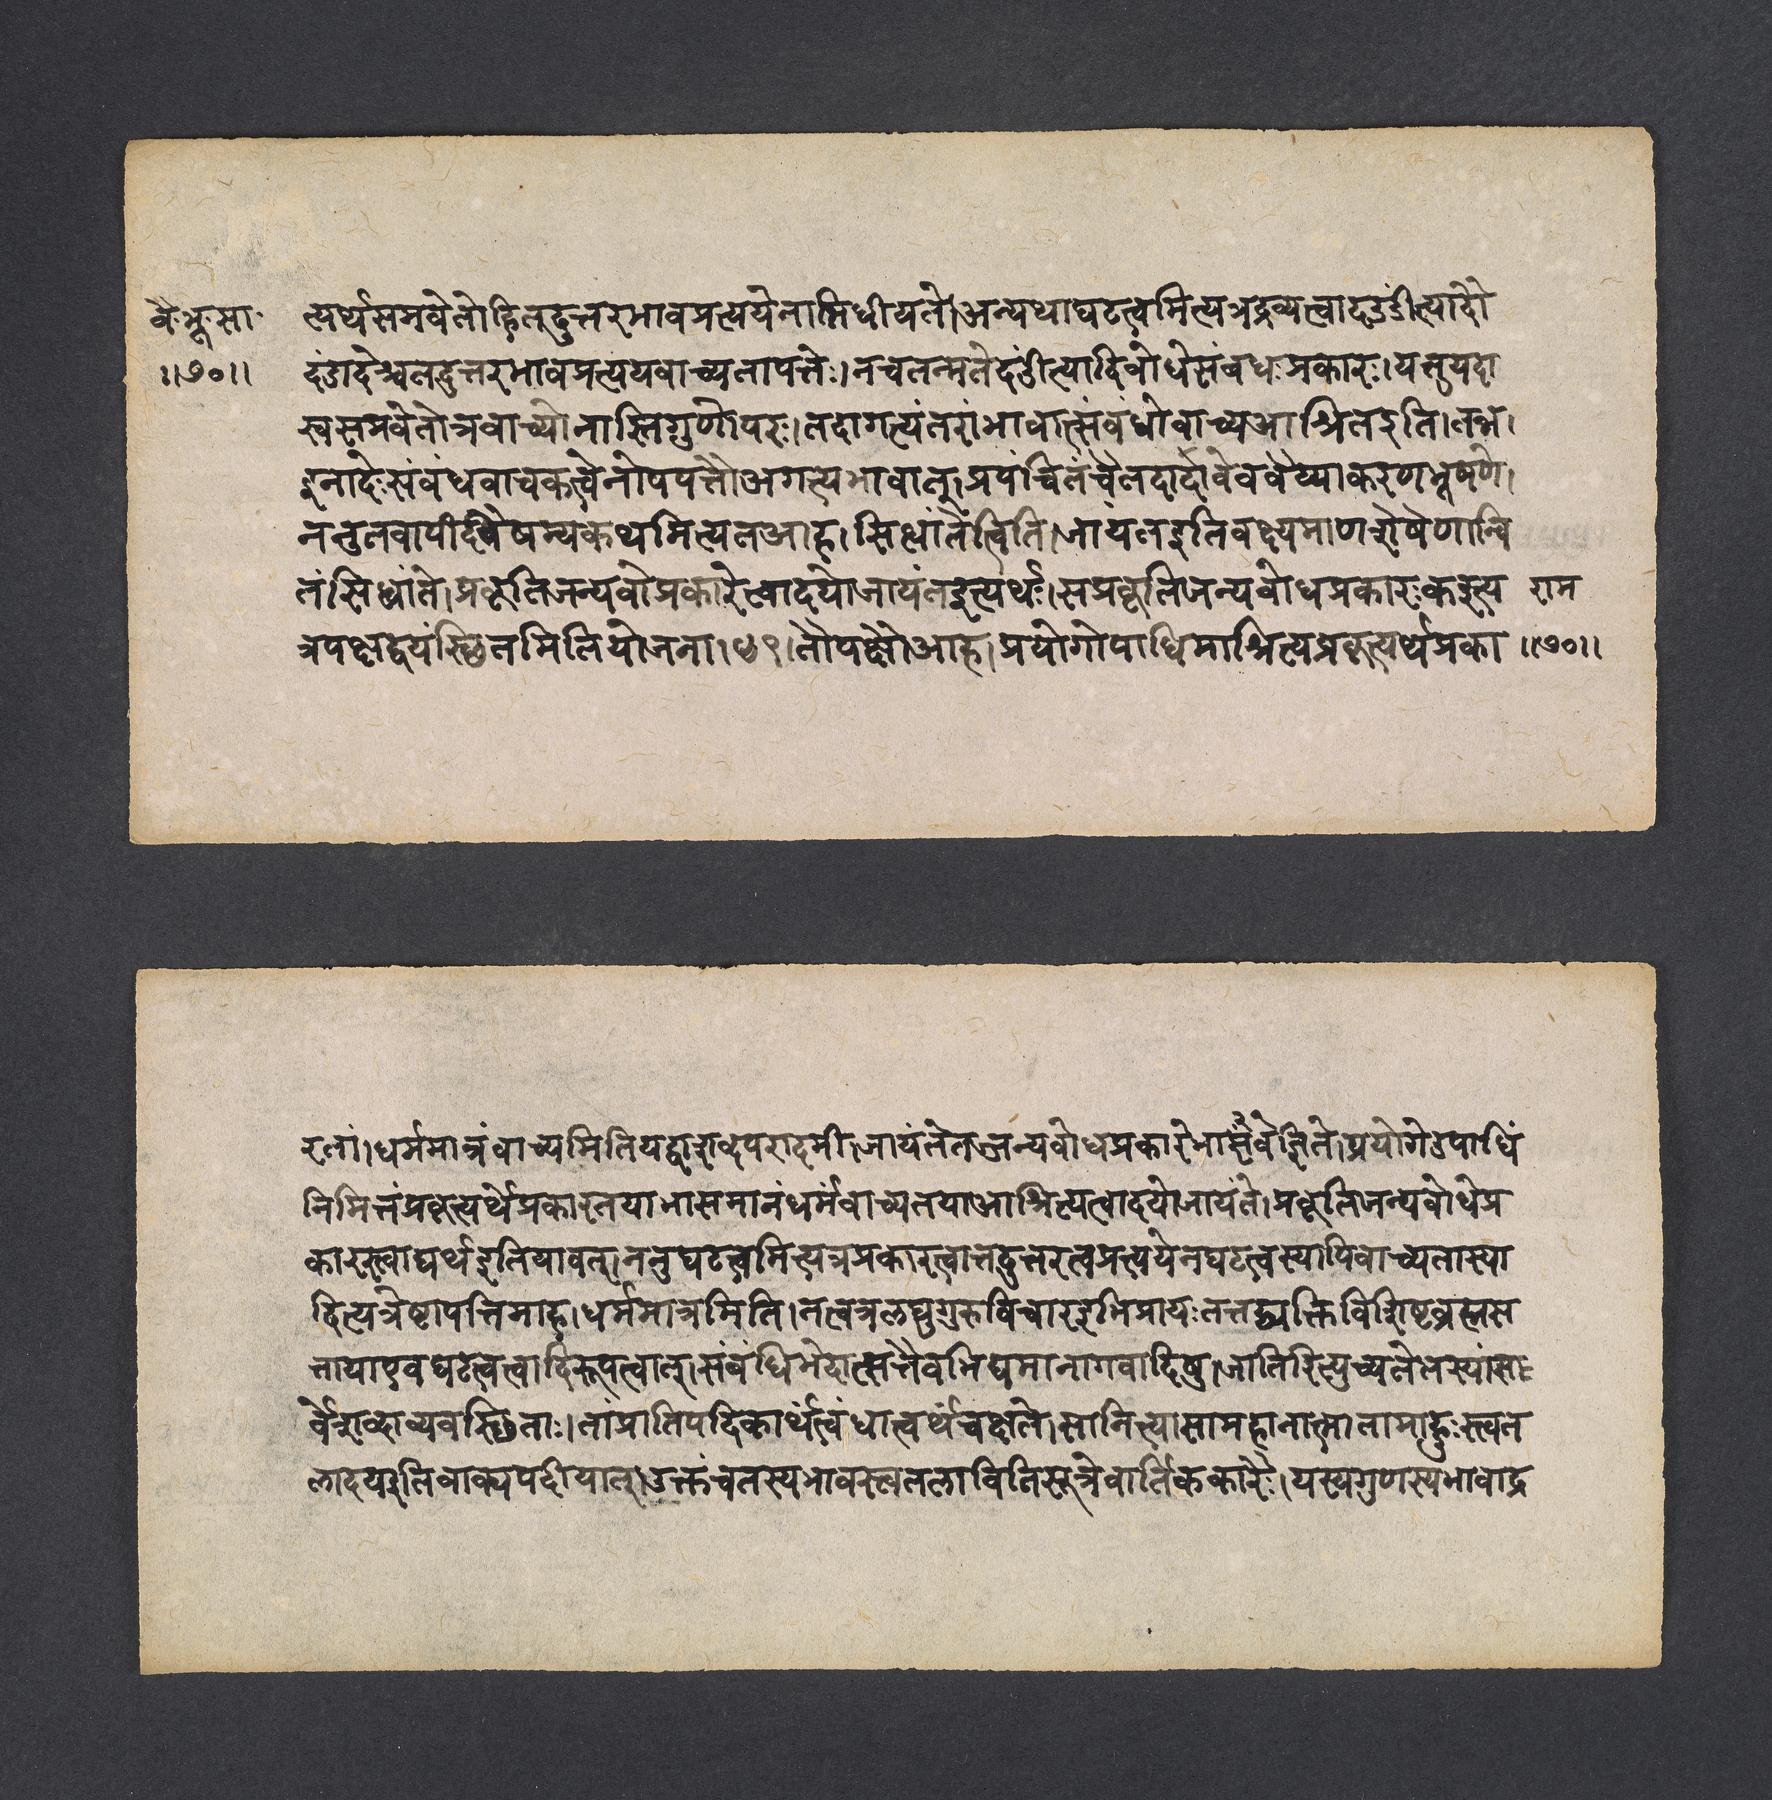 वैःभूःसाः
॥७०॥
त्पर्थसमवेतोहितदुत्तरभावप्रत्ययेनाभिधीयते।अन्यथाघटत्वमित्यत्रद्रव्यत्वादडंडीत्यादौ
दंडादेश्चतदुत्तरभावप्रत्ययवाच्यतापत्तेः।नचतन्मतेदंडीत्यादिबोधेसंबधःप्रकारः।यत्तुयदा
स्वसमवेतोत्रवाच्योनास्तिगुणोपरः।तदागत्यंतराभावात्संबंधोवाच्यआश्रितइति।तन्न।
इनादेःसंबंधवाचकत्वेनोपपत्तौअगत्यभावात्।प्रपंचितंचैतदादावेववैय्याकरणभूषणे।
ननुतवापीदंवैषम्यकथमित्यतआह।सिध्धांतेत्विति।जायंतइतिवक्ष्यमाणशेषेणान्वि
तंसिध्धांते।प्रकृतिजन्यबोप्रकारेत्वादयोजायंतइत्यर्थः।सप्रकृतिजन्यबोधप्रकारःकइत्य
त्रपक्षद्वयंस्छितमितियोजना।४९।तौपक्षौआह।प्रयोगोपाधिमाश्रित्यप्रकृत्यर्थप्रका
राम
॥७०॥
रतां।धर्ममात्रंवाच्यमितियद्वाशब्दपरादमी।जायंतेतज्जन्यबोधप्रकारेभावसंज्ञिते।प्रयोगेउपाधिं
निमित्तंप्रकृत्यर्थेप्रकारतयाभासमानंधर्मंवाच्यतयाआश्रित्यत्वादयोजायंते।प्रकृतिजन्यबोधेप्र
कारस्त्वाद्यर्थइतियावत्।ननुघटत्वमित्यत्रप्रकारत्वात्तदुत्तरत्वप्रत्ययेनघटत्वस्यापिवाच्यतास्या
दित्यत्रेष्टापत्तिमाह।धर्ममात्रमिति।नत्वत्रलघुगुरुविचारइभिप्रायःतत्तद्व्यक्तिविशिष्टब्रह्मस
त्तायाएवघटत्वत्वादिरूपत्वात्।संबंधिभेदात्सत्तैवभिद्यमानागवादिषु।जातिरित्युच्यतेतस्यांसः
र्वेशब्दाव्यवस्छिताः।तांप्रातिपदिकार्थंत्वंधात्वर्थंचक्षते।सानित्यासामहानात्मातामाहुःस्त्वत
लादयइतिवाक्यपदीयात्।उक्तंचतस्यभावस्त्वतलावितिसूत्रेवार्तिककारैः।यस्यगुणस्यभावाद्र